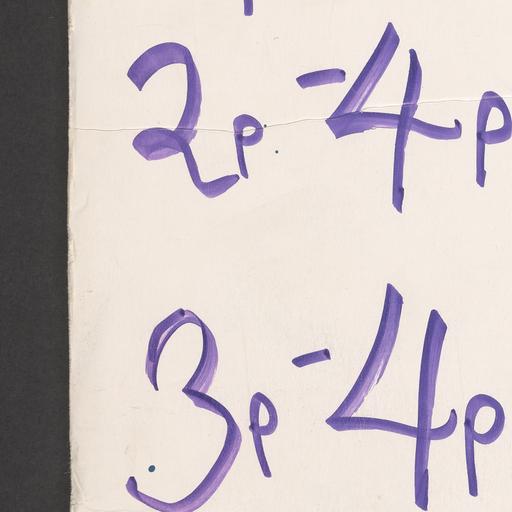 2p - 4p
3p - 4p